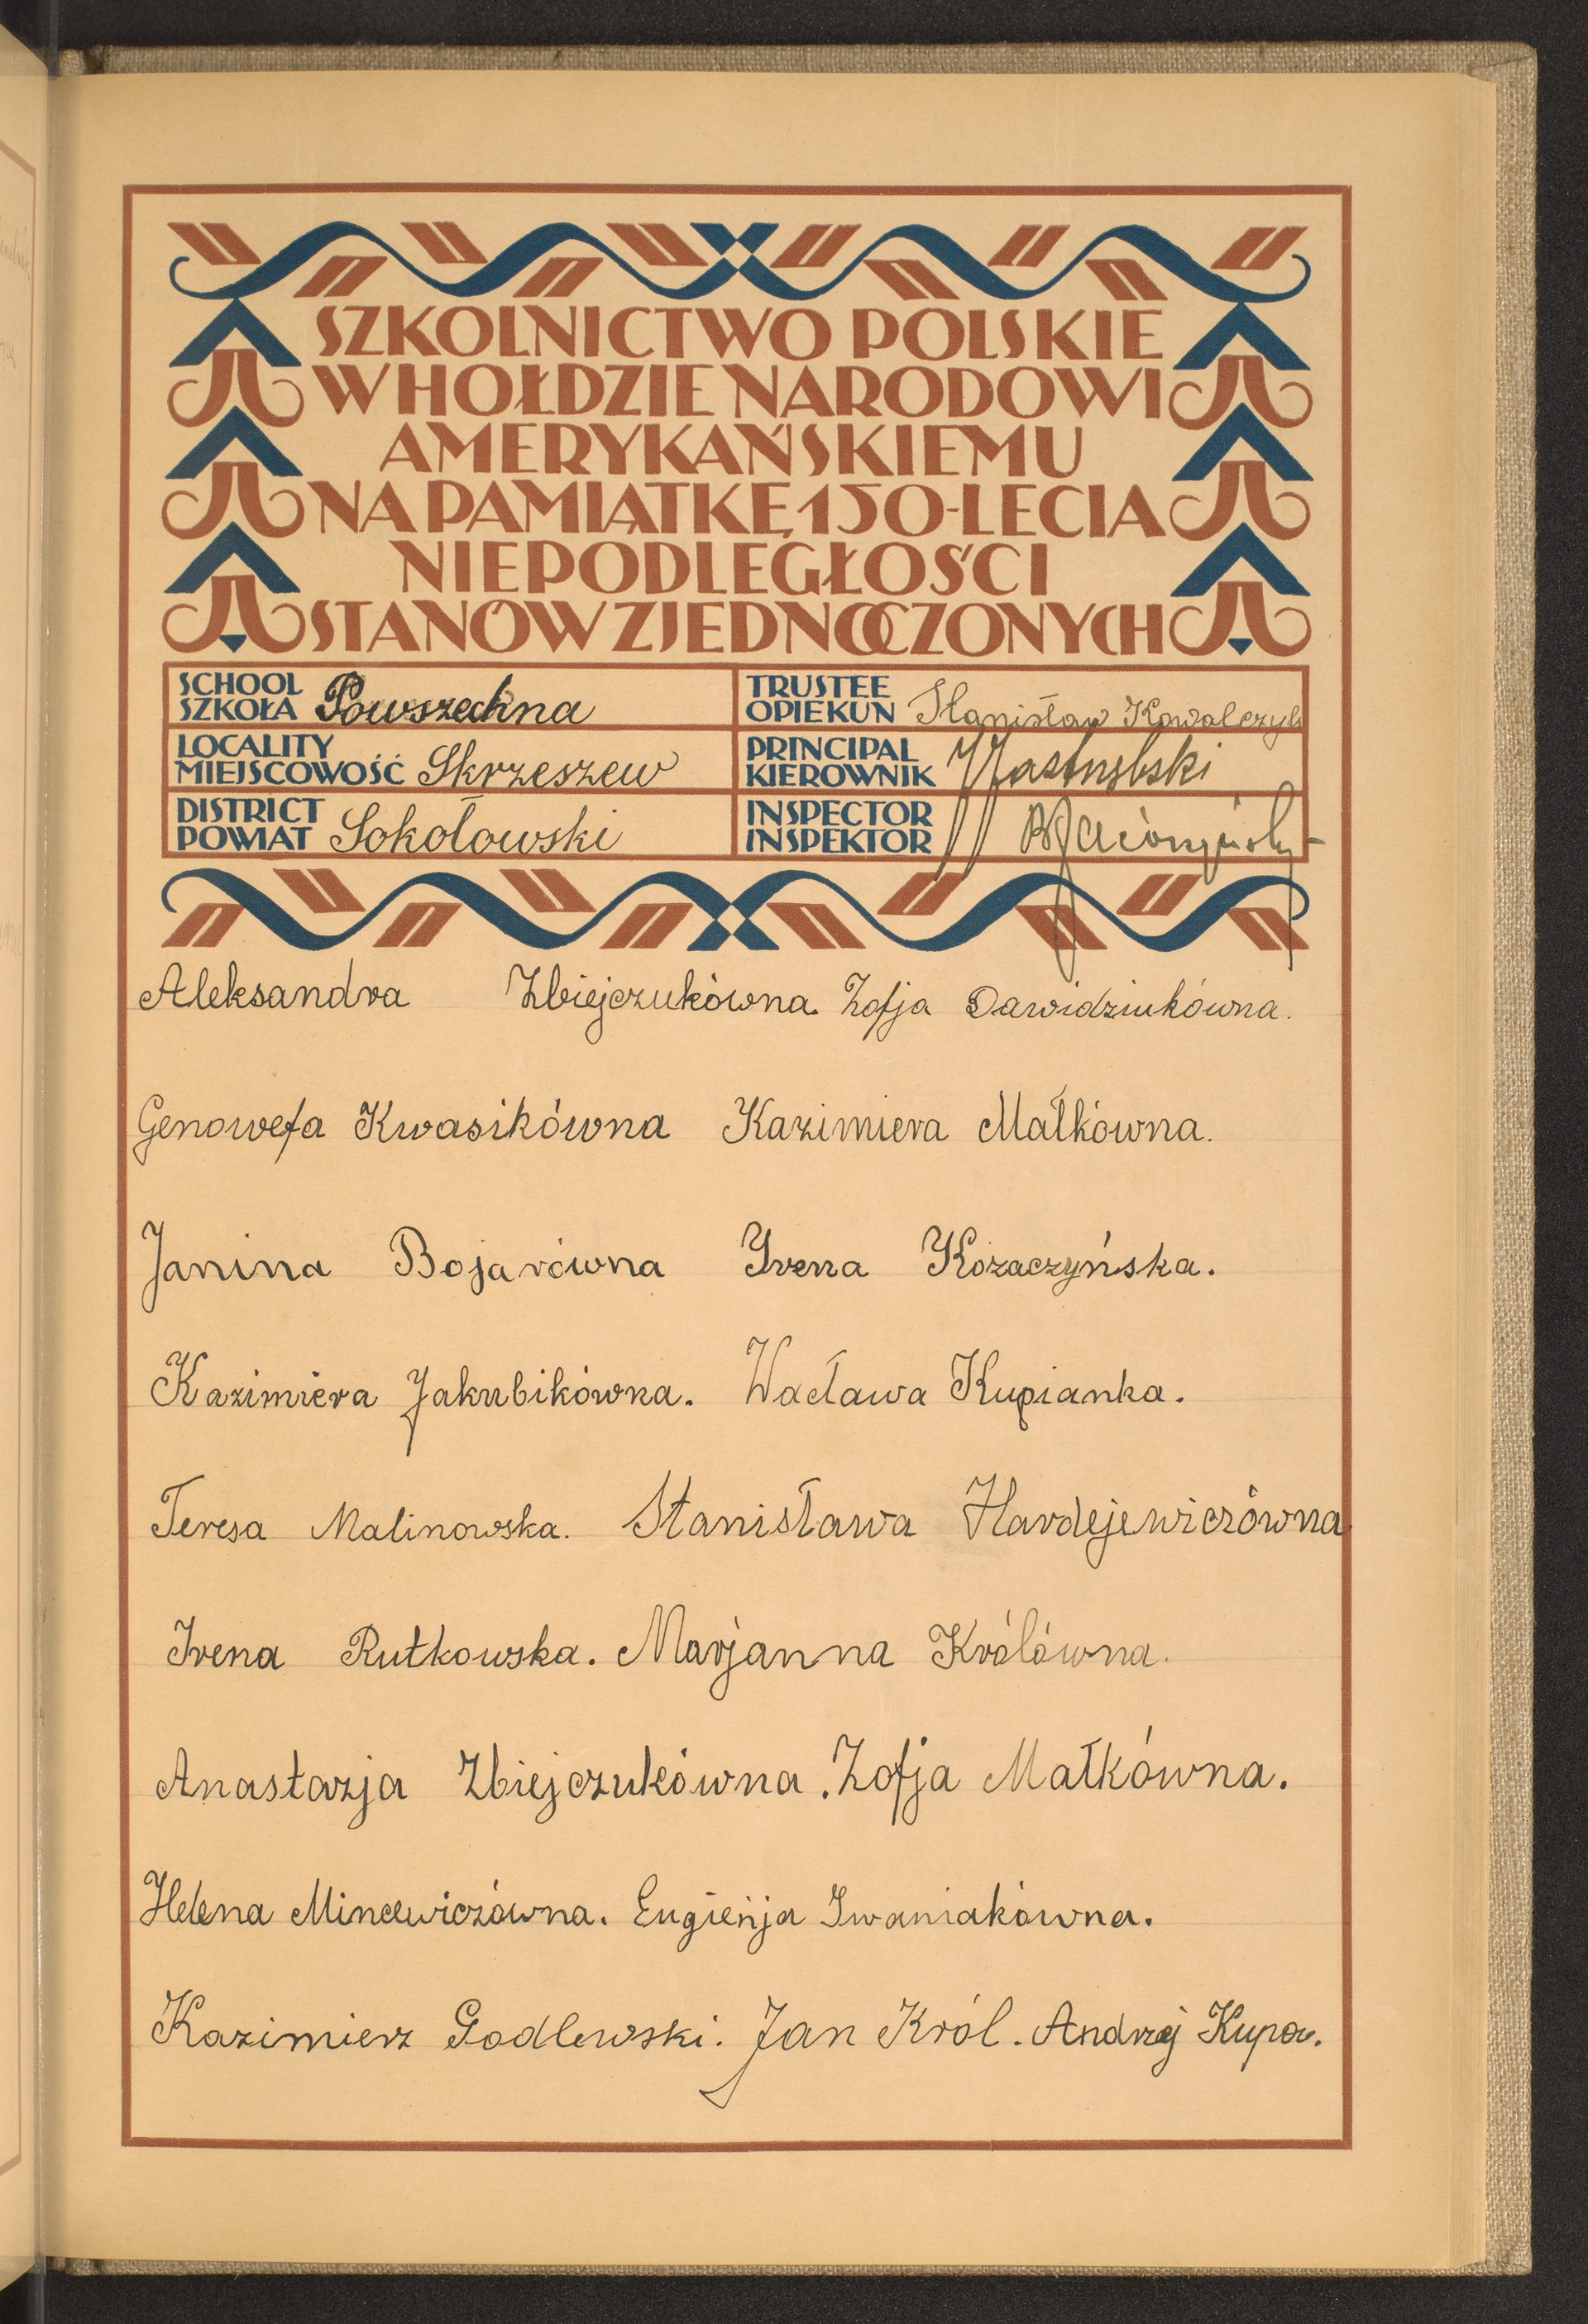 SZKOLNICTWO POLSKIE
W HOŁDZIE NARODOWI
AMERYKAŃSKIEMU
NA PAMIĄTKĘ 150-LECIA
NIEPODLEGŁOŚCI
STANÓW ZJEDNOCZONYCH
SCHOOL
SZKOŁA Powszechna
TRUSTEE
OPIEKUN Stanisław Kowalczyk
LOCALITY
MIEJSCOWOŚĆ Skrzeszew
PRINCIPAL
KIEROWNIK
DISTRICT
POWIAT Sokołowski
INSPECTOR
INSPEKTOR
Aleksandra Zbiejczukówna. Zofja Dawidziukówna.
Genowefa Kwasikówna Kazimiera Małkówna.
Janina Bojarówna Irena Kozaczyńska.
Kazimiera Jakubikówna. Wacława Kupianka.
Teresa Malinowska. Stanisława Hardejewiczówna
Irena Rutkowska. Marjanna Królówna.
Anastazja Zbiejczukówna. Zofja Małkówna.
Helena Mincewiczówna. Eugienja Iwaniakówna.
Kazimierz Godlewski. Jan Król. Andrzej Kupa.